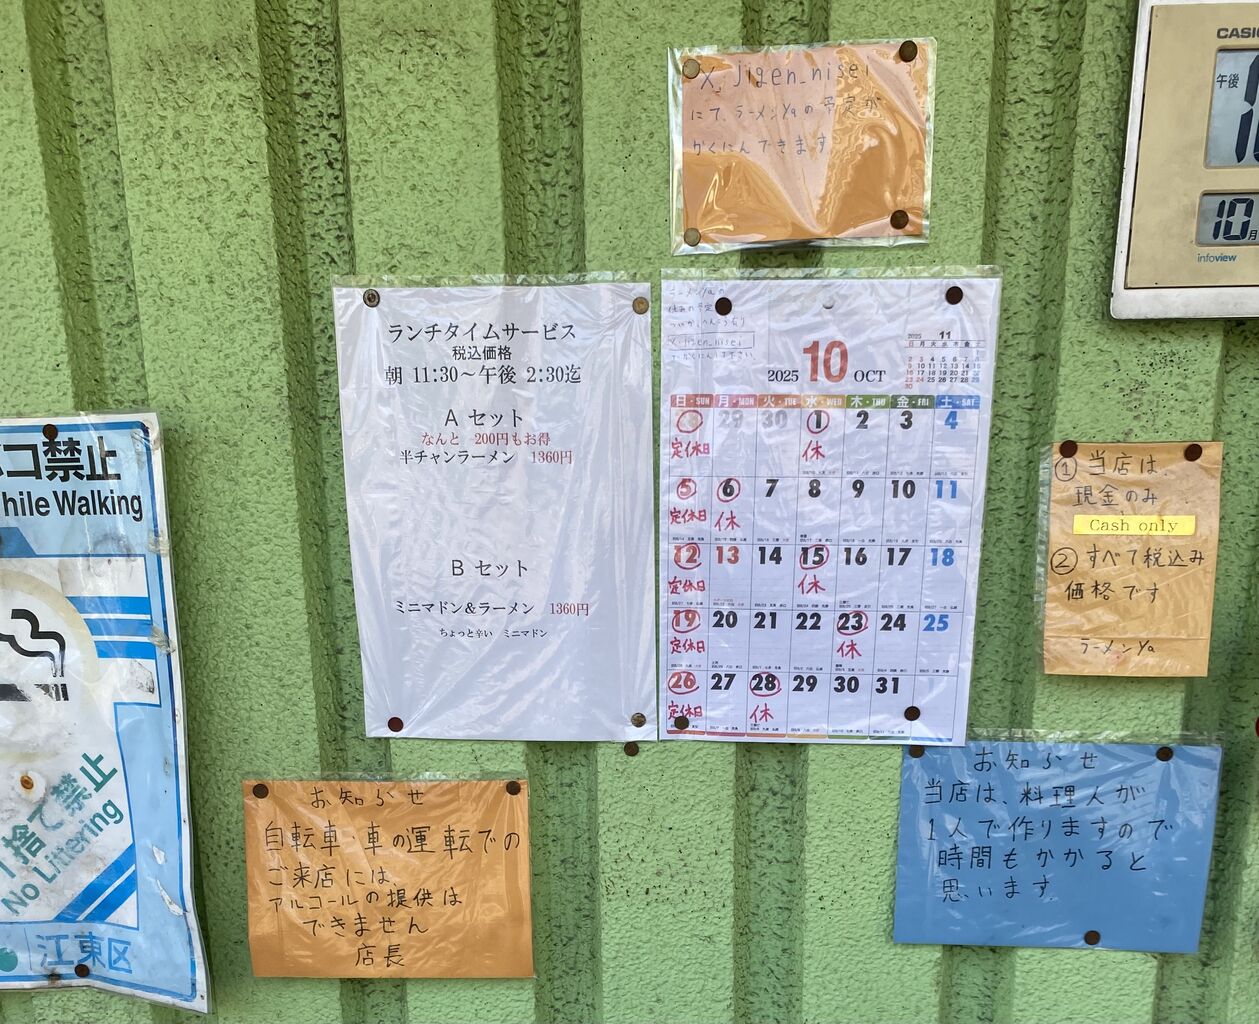 X. Jigen_nisei
にて、ラーメンYaの予定が
かくにんできます
CASIO
午後
10月
infoview
ランチタイムサービス
税込価格
朝 11:30～午後 2:30迄
A セット
なんと 200円もお得
半チャンラーメン 1360円
B セット
ミニマドン&ラーメン 1360円
ちょっと辛い ミニマドン
ラーメンYaの
X. Jigen_nisei
2025 10 OCT
2025 11
日 月 火 水 木 金 土
1
2 3 4 5 6 7 8
9 10 11 12 13 14 15
16 17 18 19 20 21 22
23 24 25 26 27 28 29
30
日・SUN 月・MON 火・TUE 水・WED 木・THU 金・FRI 土・SAT
28 29 30 1 2 3 4
定休日 休
5 6 7 8 9 10 11
定休日 休
12 13 14 15 16 17 18
定休日 休
19 20 21 22 23 24 25
定休日 休
26 27 28 29 30 31
定休日 休
① 当店は、
現金のみ
Cash only
② すべて税込み
価格です
ラーメンYa
コ禁止
hile Walking
捨て禁止
No Littering
江東区
お知らせ
自転車・車の運転での
ご来店には、
アルコールの提供は
できません
店長
お知らせ
当店は、料理人が
1人で作りますので
時間もかかると
思います.